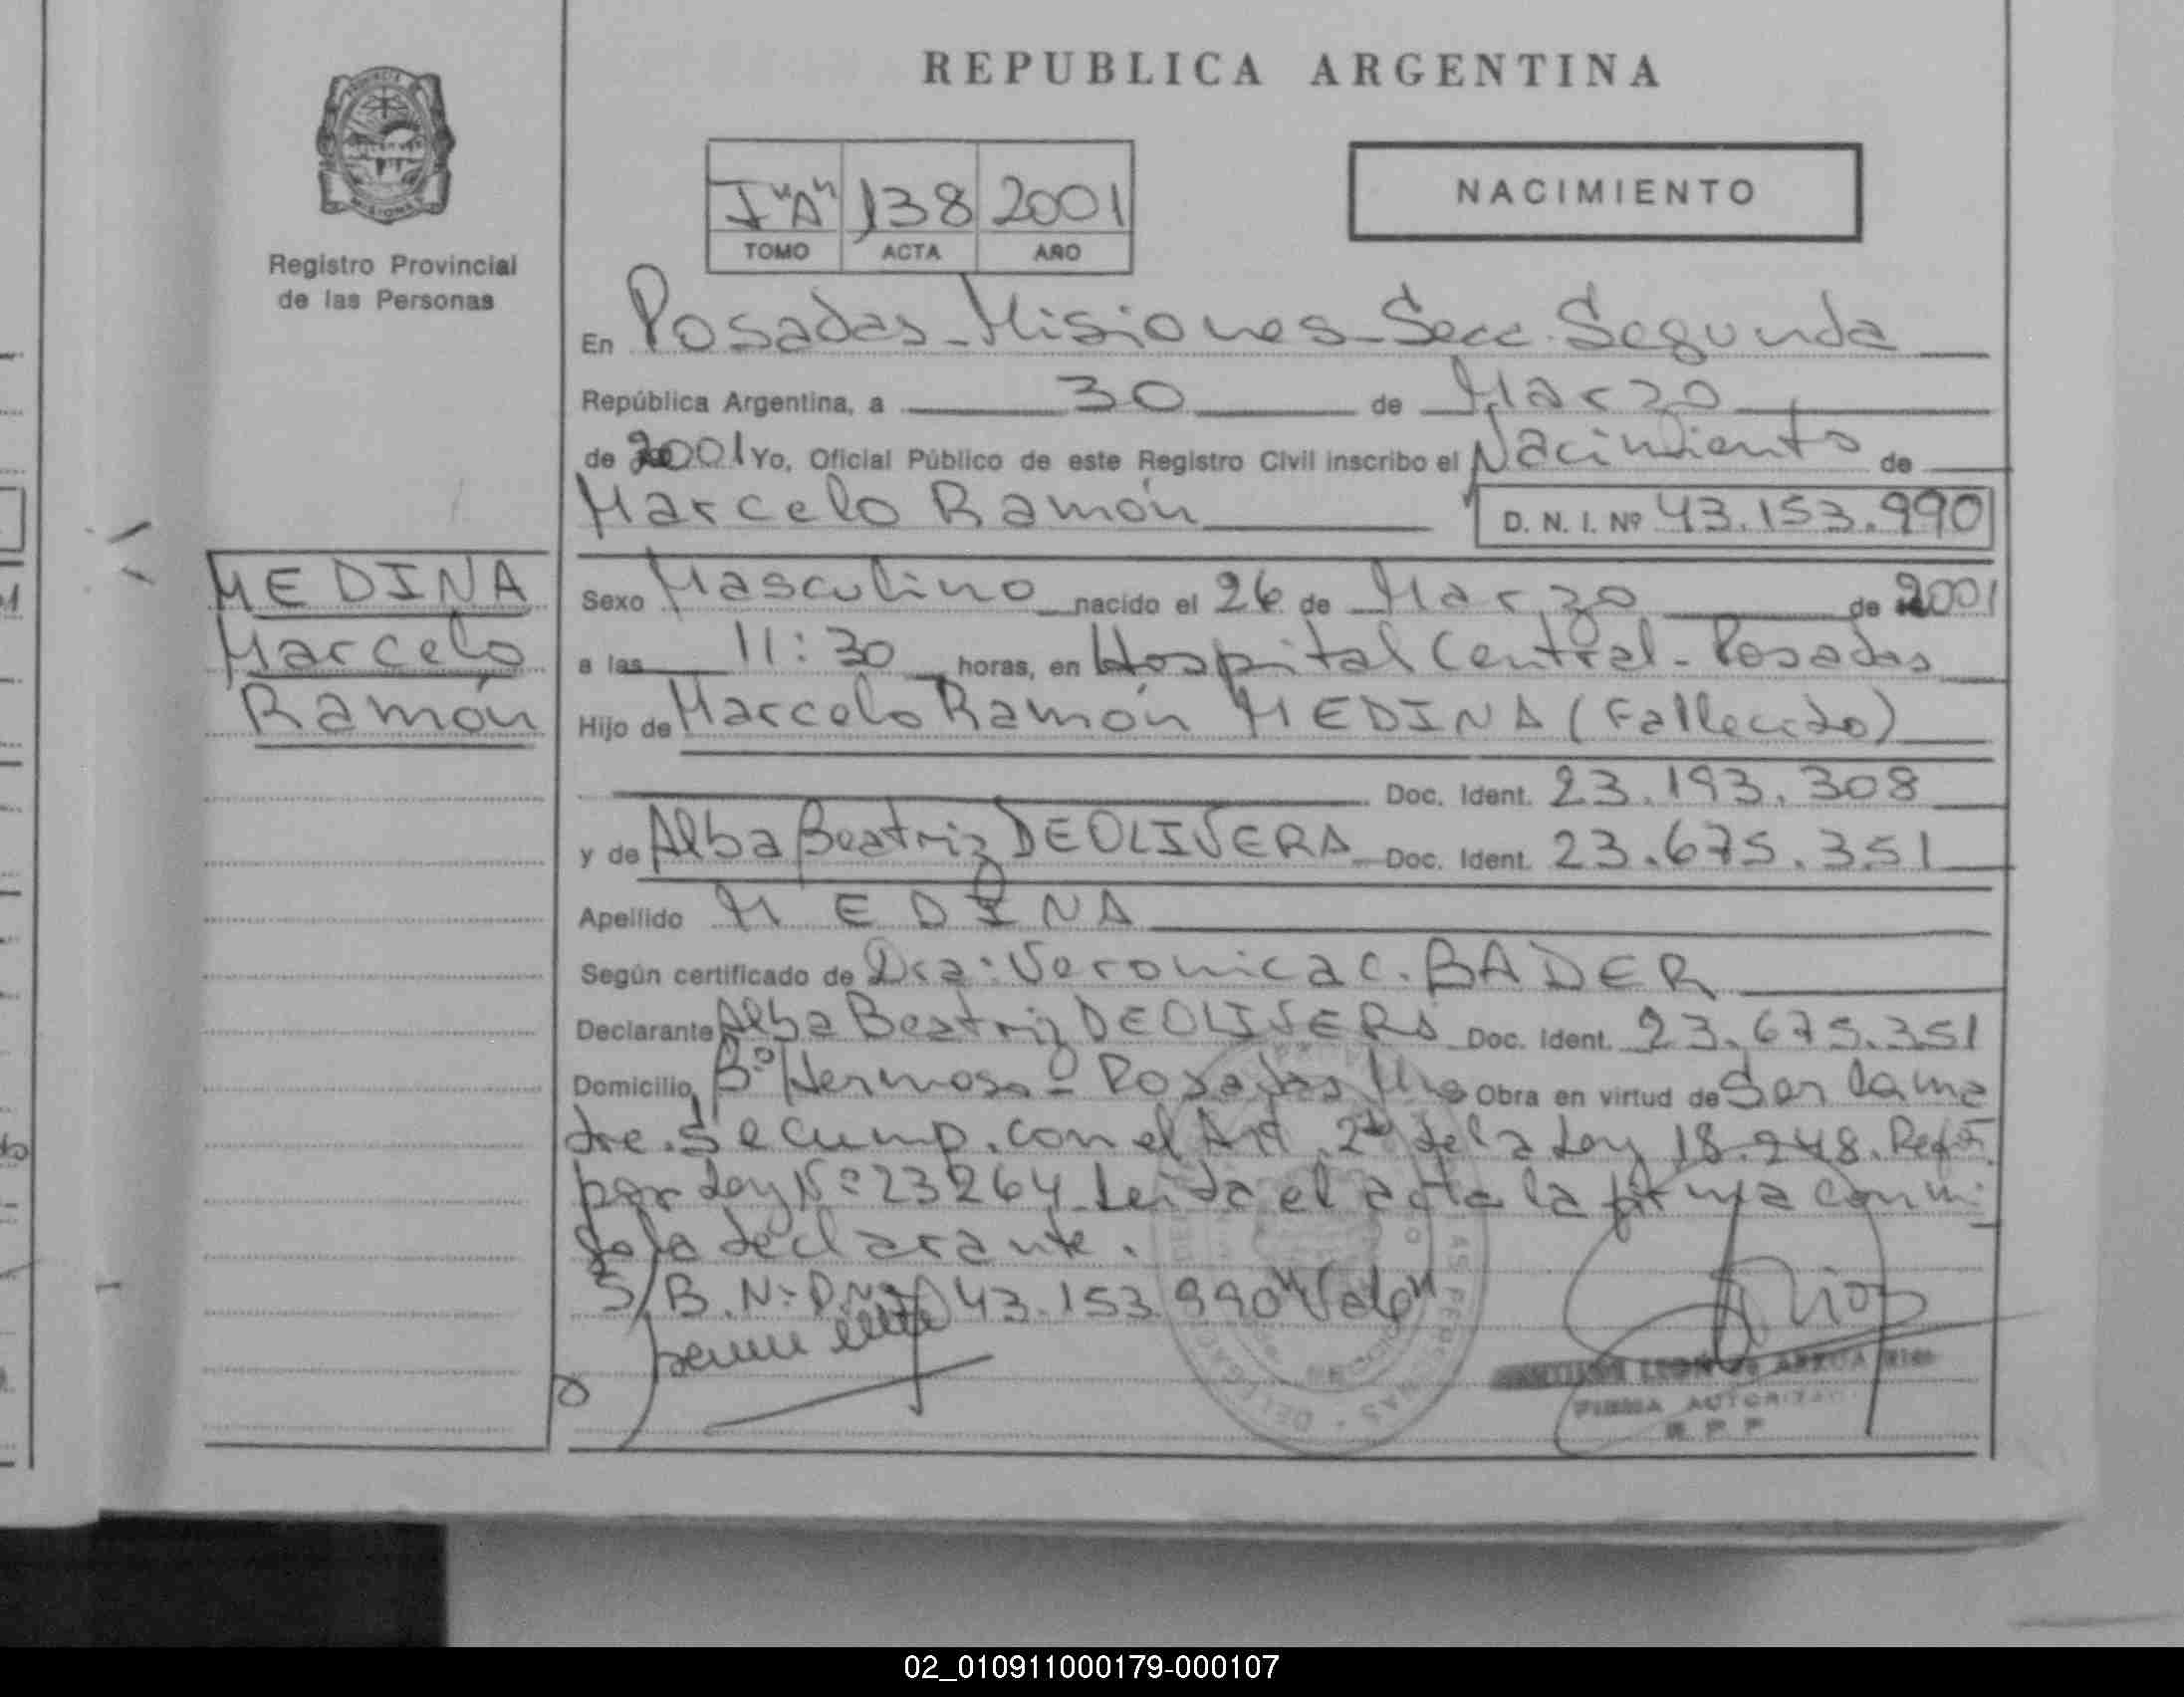 REPUBLICA ARGENTINA
PROVINCIA
MISIONES
Registro Provincial
de las Personas
I "A" 138 2001
TOMO ACTA AÑO
NACIMIENTO
En Posadas - Misiones - Secc. Segunda
República Argentina, a 30 de Marzo
de 2001 Yo, Oficial Público de este Registro Civil inscribo el Nacimiento de
Marcelo Ramón D. N. I. Nº 43.153.990
MEDINA
Marcelo
Ramón
Sexo Masculino nacido el 26 de Marzo de 2001
a las 11:30 horas, en Hospital Central - Posadas
Hijo de Marcelo Ramón MEDINA (Fallecido)
Doc. Ident. 23.193.308
y de Alba Beatriz DEOLIVERA Doc. Ident. 23.675.351
Apellido MEDINA
Según certificado de Dra: Veronica C. BADER
Declarante Alba Beatriz DEOLIVERA Doc. Ident. 23.675.351
Domicilio Bº Hermoso - Posadas Mnes Obra en virtud de Ser la ma
dre. Se cump. con el Art. 2º de la Ley 18.248. Ref.
por Ley Nº 23264 Leida el acta la firma conmi
go la declarante.
S/B. Nº D.N.I. 43.153.990 "Vale"
Rios
FIRMA AUTORIZADA
R P P
02_010911000179-000107